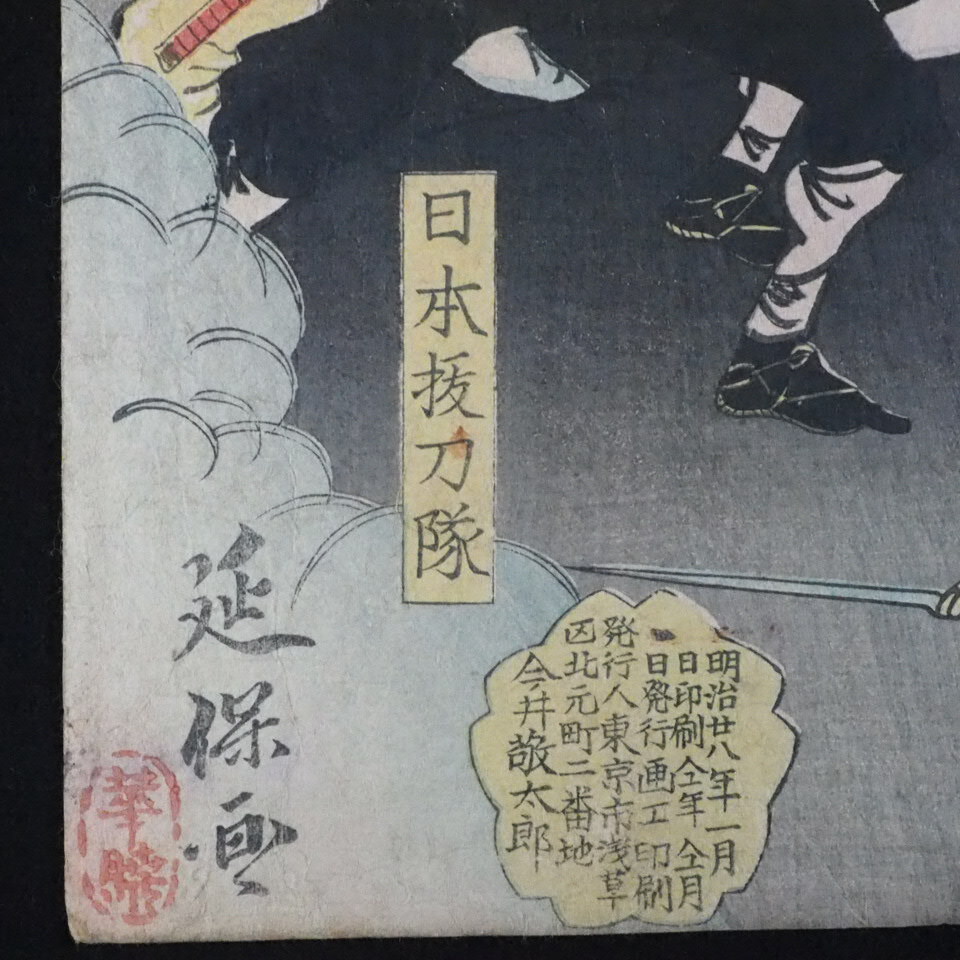 日本拔刀隊
明治廿八年一月
日印刷仝年仝月
日発行画工印刷
発行人東京市浅草
区北元町二番地
今井敬太郎
延保画